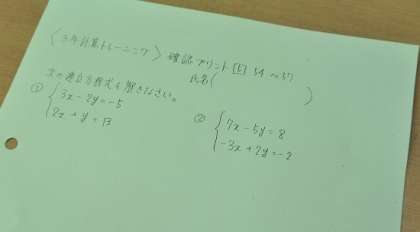 〈3年計算トレーニング〉 確認プリント [5] 34～37
氏名(　　　　)
次の連立方程式を解きなさい。
① { 3x - 2y = -5
2x + y = 13
② { 7x - 5y = 8
-3x + 2y = -2